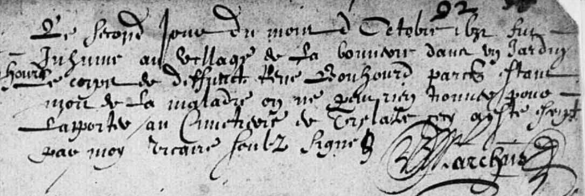 Le second Jour du mois d Octobre 1631 fut
Inhume au village de La bonnerie dans un Jardin
Le corps de deffunct Rene Bouhourd parce q estant
mort de La maladie on ne peu rien trouver pour
Lapporter au Cimetiere de cey ceste
par moy vicaire soubz signe
Marchais